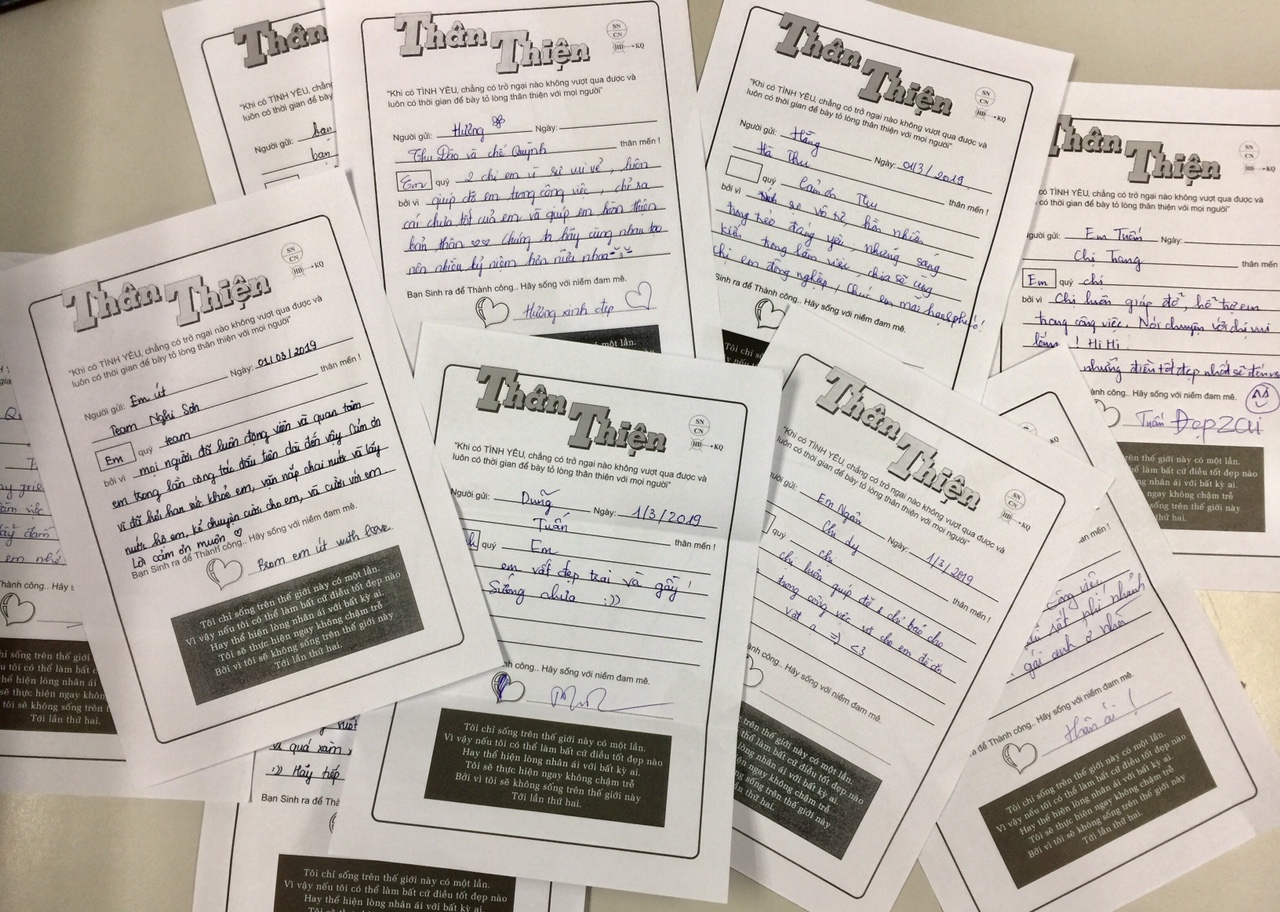 Thân
"Khi có TÌNH YÊU, chẳng
luôn có thời gian để bày
Người gửi:
bạn
Thân Thiện
SN
CN
HĐ → KQ
"Khi có TÌNH YÊU, chẳng có trở ngại nào không vượt qua được và
luôn có thời gian để bày tỏ lòng thân thiện với mọi người"
Người gửi: Hường Ngày:
Thu Đào và chế Quỳnh thân mến !
Em quý 2 chị em vì sự vui vẻ, luôn
bởi vì giúp đỡ em trong công việc, chỉ ra
cái chưa tốt của em và giúp em hoàn thiện
bản thân ♡♡ chúng ta hãy cùng nhau tạo
nên nhiều kỷ niệm hơn nữa nha
Bạn Sinh ra để Thành công.. Hãy sống với niềm đam mê.
Hường xinh đẹp
một lần.
Thân Thiện
SN
CN
HĐ → KQ
"Khi có TÌNH YÊU, chẳng có trở ngại nào không vượt qua được và
luôn có thời gian để bày tỏ lòng thân thiện với mọi người"
Người gửi: Hằng Ngày: 01/3/2019
Hà Thu thân mến !
quý Cảm ơn Thu
bởi vì sự vô tư hồn nhiên
trong trẻo đáng yêu những sáng
kiến trong làm việc, chia sẻ cùng
chị em đồng nghiệp, Chúc em mãi
Sinh ra để Thành công.. Hãy sống với niềm đam mê.
Tôi chỉ số
Thân Thiện
SN
CN
HĐ → KQ
có TÌNH YÊU, chẳng có trở ngại nào không vượt qua được và
có thời gian để bày tỏ lòng thân thiện với mọi người"
Người gửi: Em Tuấn Ngày:
Chị Trang thân mến !
Em quý chị
bởi vì Chị luôn giúp đỡ, hỗ trợ em
trong công việc. Nói chuyện với chị vui
lắm ! Hi Hi
những điều tốt đẹp nhất sẽ đến
Thành công.. Hãy sống với niềm đam mê.
Tuấn Đẹp zai
trên thế giới này có một lần.
có thể làm bất cứ điều tốt đẹp nào
lòng nhân ái với bất kỳ ai.
hiện ngay không chậm trễ
không sống trên thế giới này
Tới lần thứ hai.
Thân Thiện
SN
CN
HĐ → KQ
"Khi có TÌNH YÊU, chẳng có trở ngại nào không vượt qua được và
luôn có thời gian để bày tỏ lòng thân thiện với mọi người"
Người gửi: Em út Ngày: 01/03/2019
Team Nghi Sơn thân mến !
Em quý team
bởi vì mọi người đã luôn động viên và quan tâm
em trong lần công tác đầu tiên dài đến vậy. Cảm ơn
vì đã hỏi han sức khoẻ em, vặn nắp chai nước và lấy
nước hộ em, kể chuyện cười cho em, và cười với em
Lời cảm ơn muộn ♡
Bạn Sinh ra để Thành công.. Hãy sống với niềm đam mê.
From em út with love
Tôi chỉ sống trên thế giới này có một lần.
Vì vậy nếu tôi có thể làm bất cứ điều tốt đẹp nào
Hay thể hiện lòng nhân ái với bất kỳ ai.
Tôi sẽ thực hiện ngay không chậm trễ
Bởi vì tôi sẽ không sống trên thế giới này
Tới lần thứ hai.
Thân Thiện
SN
CN
HĐ → KQ
"Khi có TÌNH YÊU, chẳng có trở ngại nào không vượt qua được và
luôn có thời gian để bày tỏ lòng thân thiện với mọi người"
Người gửi: Dũng Ngày: 1/3/2019
Tuấn thân mến !
quý Em
em vất đẹp trai và gãy !
Sướng chưa :))
Thành công.. Hãy sống với niềm đam mê.
Tôi chỉ sống trên thế giới này có một lần.
Vì vậy nếu tôi có thể làm bất cứ điều tốt đẹp nào
Hay thể hiện lòng nhân ái với bất kỳ ai.
Tôi sẽ thực hiện ngay không chậm trễ
Bởi vì tôi sẽ không sống trên thế giới này
Tới lần thứ hai.
Thân Thiện
SN
CN
HĐ → KQ
"Khi có TÌNH YÊU, chẳng có trở ngại nào không vượt qua được và
luôn có thời gian để bày tỏ lòng thân thiện với mọi người"
gửi: Em Ngân Ngày: 1/3/2019
Chị dy thân mến !
quý chị
chị luôn giúp đỡ & chỉ bảo cho
trong công việc và cho em
<3
Thành công.. Hãy sống với niềm đam mê.
trên thế giới này có một lần.
có thể làm bất cứ điều tốt đẹp nào
lòng nhân ái với bất kỳ ai.
hiện ngay không chậm trễ
không sống trên thế giới này
Tới lần thứ hai.
Công việc
gái anh ở nhà
ra để Thành công.. Hãy sống với niềm đam mê.
thân ái !
Tôi chỉ sống trên thế giới này có một lần.
Vì vậy nếu tôi có thể làm bất cứ điều tốt đẹp nào
Hay thể hiện lòng nhân ái với bất kỳ ai.
Tôi sẽ thực hiện ngay không chậm trễ
Bởi vì tôi sẽ không sống trên thế giới này
Tới lần thứ hai.
và quá xàm,
:)) Hãy tiếp
Bạn Sinh ra để Thành
Tôi chỉ sống trên thế giới này có một lần.
Vì vậy nếu tôi có thể làm bất cứ điều tốt đẹp nào
Hay thể hiện lòng nhân ái với bất kỳ ai.
Thành công.. Hãy
chỉ sống trên thế giới